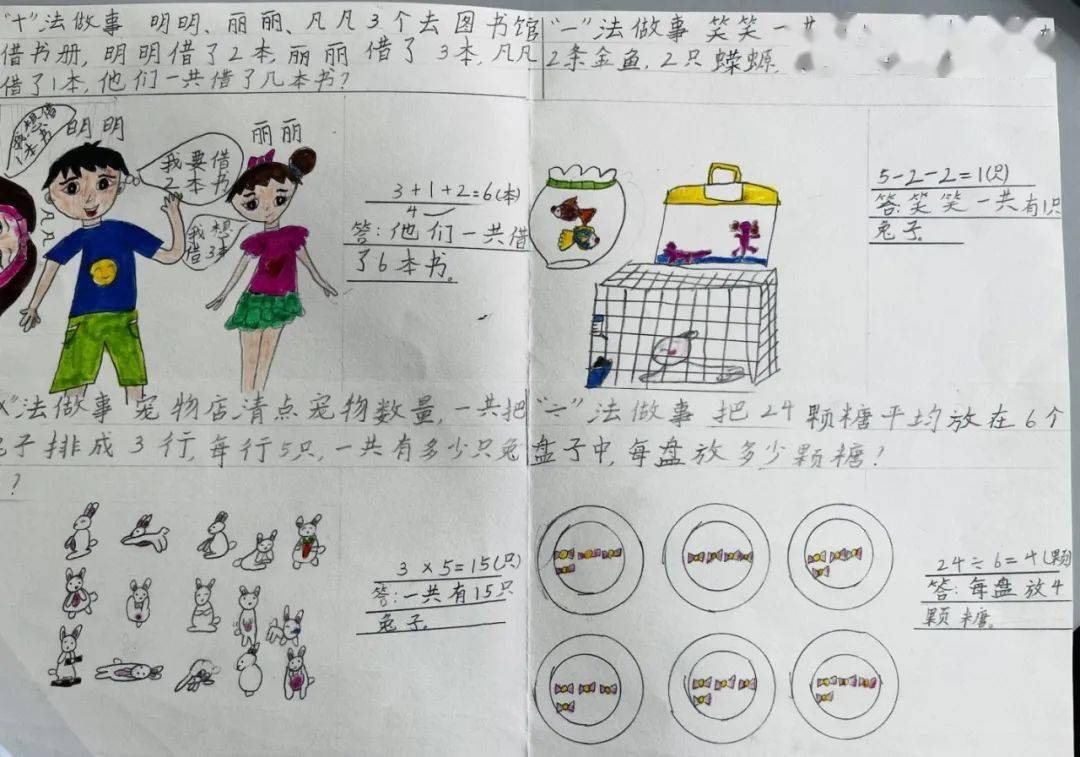 “十”法做事 明明、丽丽、凡凡3个去图书馆
借书册,明明借了2本,丽丽借了3本,凡凡
借了1本,他们一共借了几本书?
我想借
1本书
凡凡
明明
我要借
2本书
丽丽
我想
借3本
3+1+2=6(本)
4
答:他们一共借
了6本书。
“一”法做事 笑笑一共
2条金鱼,2只蝾螈,
5-2-2=1(只)
答:笑笑一共有1只
兔子。
x”法做事 宠物店清点宠物数量,一共把
子排成3行,每行5只,一共有多少只兔
?
3×5=15(只)
答:一共有15只
兔子。
“÷”法做事 把24颗糖平均放在6个
盘子中,每盘放多少颗糖?
24÷6=4(颗)
答:每盘放4
颗糖。